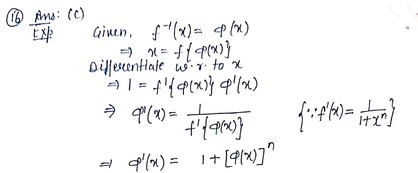 (16) Ans: (C)
Exp Given, f⁻¹(x) = φ(x)
⇒ x = f{φ(x)}
Differentiate w.r. to x
⇒ 1 = f'{φ(x)} φ'(x)
⇒ φ'(x) = 1/f'{φ(x)} {∵ f'(x) = 1/1+xⁿ}
⇒ φ'(x) = 1+[φ(x)]ⁿ